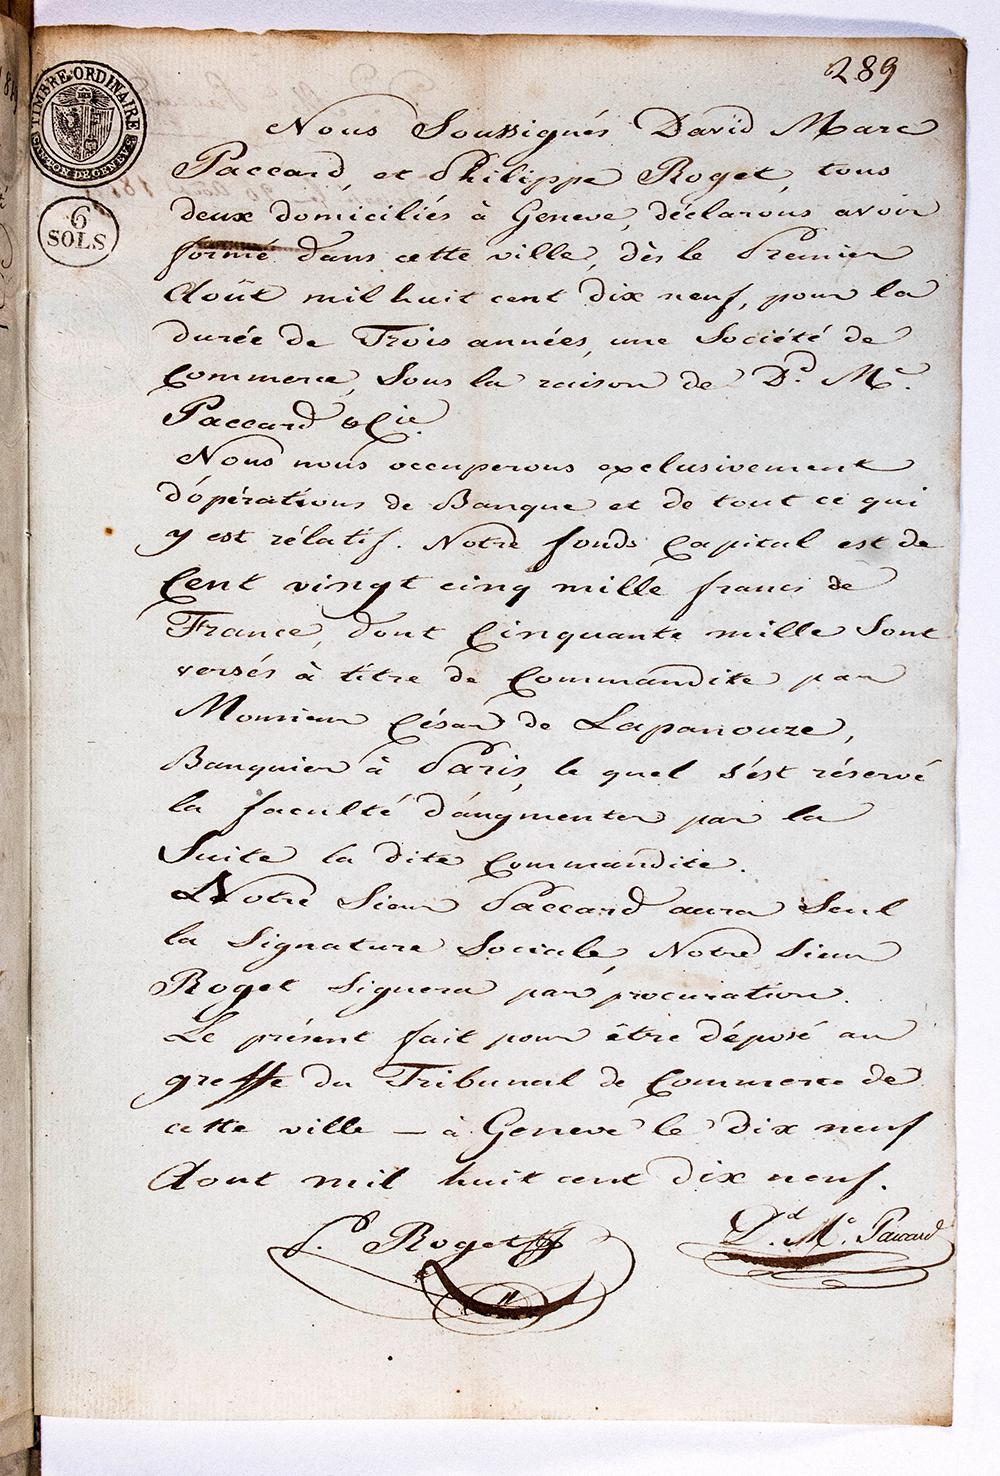 289
TIMBRE ORDINAIRE
CANTON DE GENEVE
6
SOLS
Nous Soussignés David Marc
Paccard, et Philippe Roget, tous
deux domiciliés à Geneve, déclarons avoir
formé dans cette ville, dès le Premier
Août mil huit cent dix neuf, pour la
durée de Trois années, une Société de
Commerce, Sous la raison de Dd. Mc.
Paccard & Cie.
Nous nous occuperons exclusivement
d'opérations de Banque et de tout ce qui
y est rélatif. Notre fonds Capital est de
Cent vingt cinq mille francs de
France, dont Cinquante mille Sont
versés à titre de Commandite par
Monsieur César de Lapanouze,
Banquier à Paris, le quel s'est réservé
la faculté d'augmenter par la
Suite la dite Commandite.
Notre Sieur Paccard aura Seul
la Signature Sociale, Notre Sieur
Roget Signera par procuration.
Le présent fait pour être déposé au
greffe du Tribunal de Commerce de
cette ville — à Geneve le dix neuf
Aout mil huit cent dix neuf.
P. Roget
Dd. Mc. Paccard